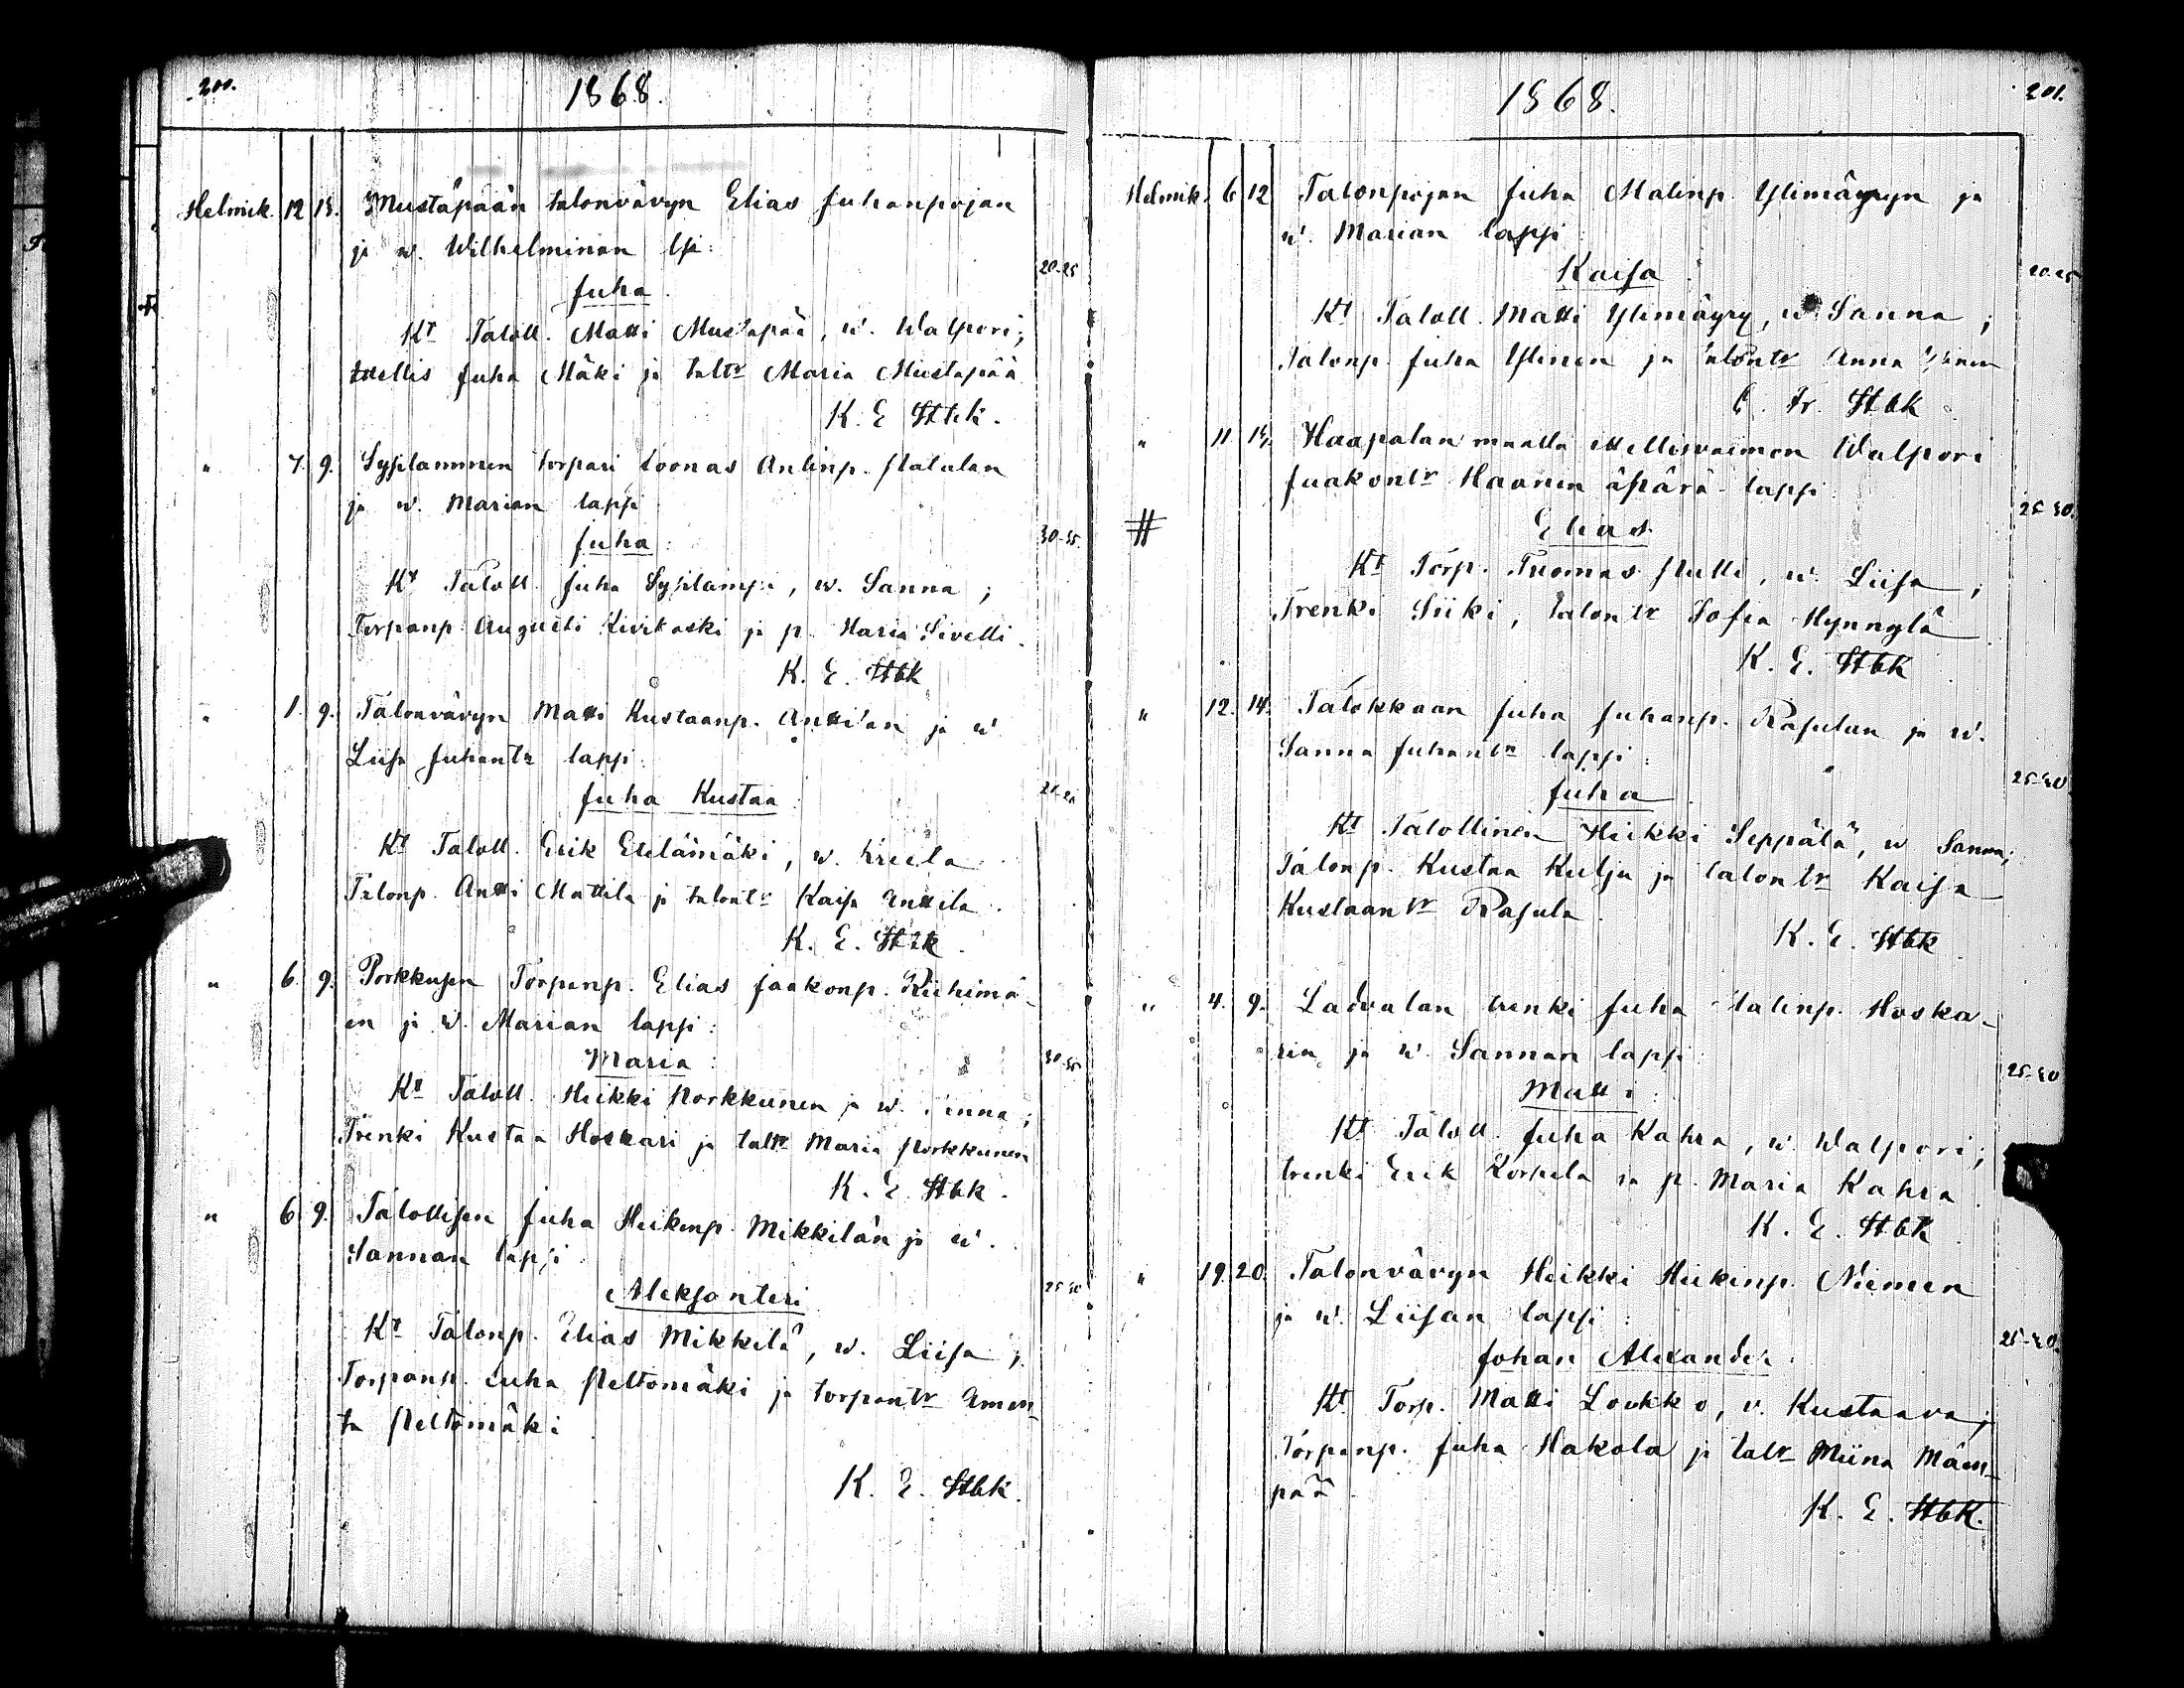 200.
1868.
Helmik. 12 15. Mustapään talonvävyn Elias Juhanpojan
ja w. Wilhelminan lsi:
Juha. 20-25
Kt Taloll. Matti Mustapää, w. Walpori;
Itellis Juha Mäki ja taltr Maria Mustapää
K. E. Stbk.
" 7. 9. Syplammen torpari Joonas Antinp.
ja w. Marian lapsi
Juha: 30-35.
Kt Taloll. Juha Syplampi, w. Sanna;
Torpanp. Augusti Kivikoski ja p. Maria Sivelli.
K. E. Stbk
" 1. 9. Talonvävyn Matti Kustaanp. Anttilan ja w
Liisa Juhantr lapsi:
Juha Kustaa:
Kt Taloll. Erik Etelämäki, w. Kreeta
Talonp. Antti Mattila ja talontr Kaisa Anttila.
K. E. Stbk.
" 6. 9. Porkkusen Torpanp. Elias Jaakonp. Riihimä-
en ja w. Marian lapsi:
Maria: 30-35
Kt Taloll. Heikki Porkkunen ja w. ;
Trenki Kustaa Hoskari ja taltr Maria Porkkunen
K. E. Stbk.
" 6 9. Talollisen Juha Heikinp. Mikkilän ja w.
Sannan lapsi
Aleksanteri 25-30
Kt Talonp. Elias Mikkilä, w. Liisa;
Torpanp. Juha Peltomäki ja torpantr Aman-
ta Peltomäki
K. E. Stbk.
201.
1868.
Helmik. 6 12 Talonpojan Juha Matinp. Ylimäyryn ja
w. Marian lapsi:
Kaisa 20-25
Kt Taloll. Matti Ylimäyry, w. Sanna;
Talonp. Juha Ylinen ja talontr Anna Ylinen
Stbk
" 11. Haapalan maalla itellisvaimon Walpori
Jaakontr Haanen äpärä-lapsi
# Elias. 25-30.
Kt Torp. Tuomas Pulli, w. Liisa,
Trenki Siiki, talontr Sofia Hynnylä
K. E. Stbk
" 12. 14. Talokkaan Juha Juhanp. Rasulan ja w.
Sanna Juhantr lapsi:
Juha 25-30
Kt Talollinen Heikki Seppälä, w Sanna;
Talonp. Kustaa Kulju ja talontr Kaisa
Kustaantr Rasula.
K. E. Stbk
" 4. 9. Ladvalan trenki Juha Matinp. Hoska-
rin ja w. Sannan lapsi:
Matti: 25-30
Kt Taloll. Juha Kahra, w. Walpori;
trenki Erik Korpela ja p. Maria Kahra
K. E. Stbk
" 19. 20. Talonvävyn Heikki Heikinp. Niemen
ja w. Liisan lapsi:
Johan Alexander. 25-30.
Kt Torp. Matti Loukko, v. Kustaava;
Torpanp. Juha Hakola ja taltr Miina Mäen-
pää.
K. E. Stbk.